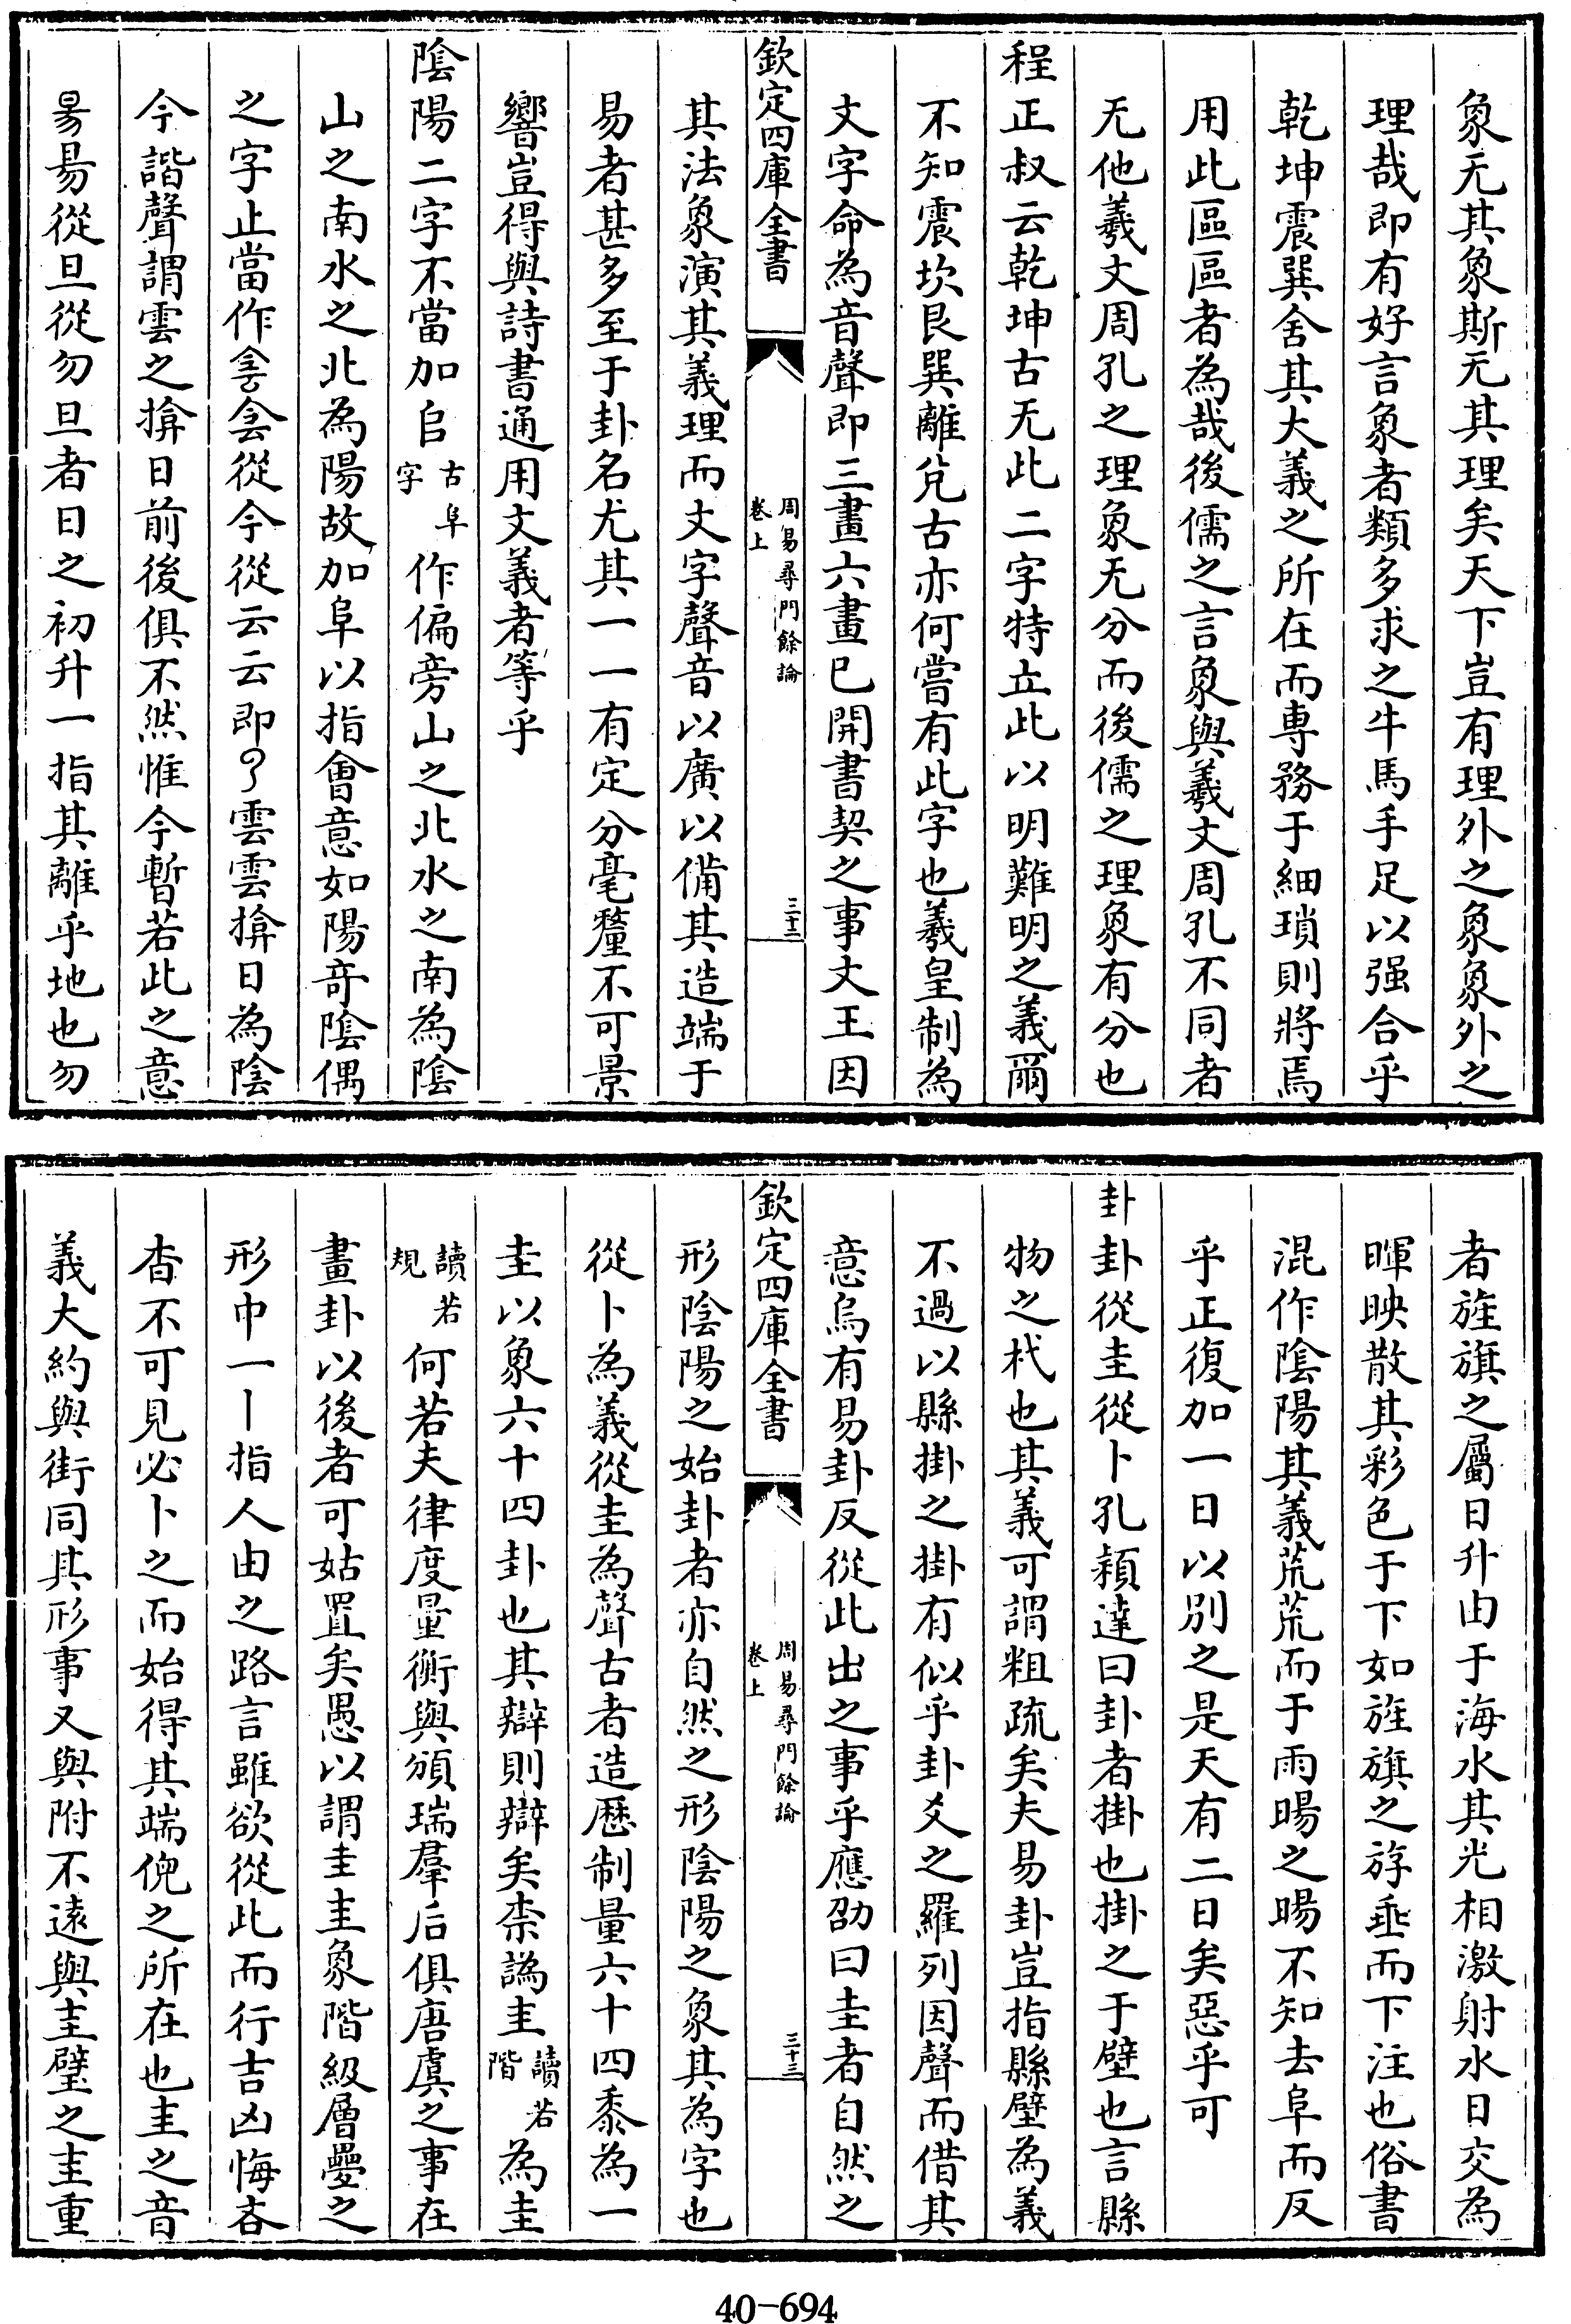 象无其象斯无其理矣天下豈有理外之象象外之
理哉即有好言象者類多求之牛馬手足以强合乎
乾坤震巽舍其大義之所在而專務于細瑣則將焉
用此區區者為哉後儒之言象與羲文周孔不同者
无他羲文周孔之理象无分而後儒之理象有分也
程正叔云乾坤古无此二字特立此以明難明之義爾
不知震坎艮巽離兌古亦何嘗有此字也羲皇制為
文字命為音聲即三畫六畫已開書契之事文王因
欽定四庫全書
周易尋門餘論
卷上
三十二
其法象演其義理而文字聲音以廣以備其造端于
易者甚多至于卦名尤其一一有定分毫釐不可景
響豈得與詩書通用文義者等乎
陰陽二字不當加𠂤古阜字作偏旁山之北水之南為陰
山之南水之北為陽故加阜以指會意如陽竒陰偶
之字止當作侌侌從今從云云即雲雲揜日為陰
今諧聲謂雲之揜日前後俱不然惟今暫若此之意
昜昜從旦從勿旦者日之初升一指其離乎地也勿
者旌旗之屬日升由于海水其光相激射水日交為
暉映散其彩色于下如旌旗之斿垂而下注也俗書
混作陰陽其義荒荒而于雨暘之暘不知去阜而反
乎正復加一日以别之是天有二日矣惡乎可
卦卦從圭從卜孔穎達曰卦者掛也掛之于壁也言縣
物之杙也其義可謂粗疏矣夫易卦豈指縣壁為義
不過以縣掛之掛有似乎卦爻之羅列因聲而借其
意烏有易卦反從此出之事乎應劭曰圭者自然之
欽定四庫全書
周易尋門餘論
卷上
三十三
形陰陽之始卦者亦自然之形陰陽之象其為字也
從卜為義從圭為聲古者造歷制量六十四黍為一
圭以象六十四卦也其辯則辯矣柰譌圭讀若階為圭
讀若規何若夫律度量衡與頒瑞羣后俱唐虞之事在
畫卦以後者可姑置矣愚以謂圭圭象階級層疊之
形巾一丨指人由之路言雖欲從此而行吉凶悔吝
杳不可見必卜之而始得其端倪之所在也圭之音
義大約與街同其形事又與附不遠與圭璧之圭重
40-694